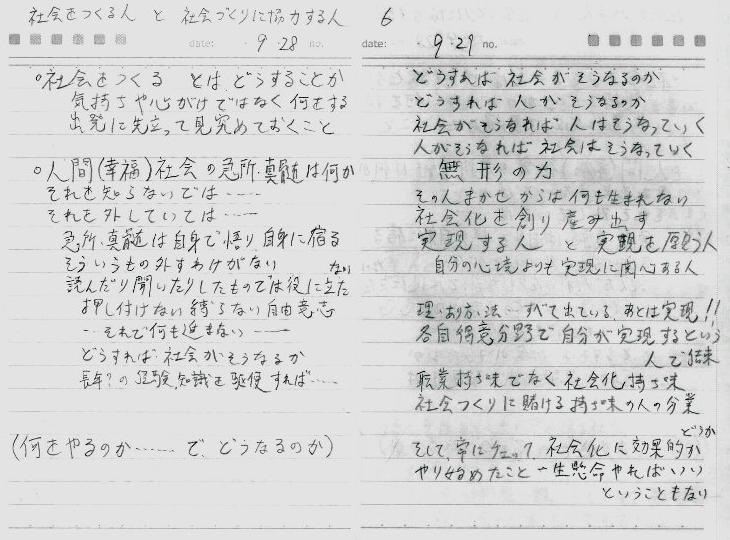 社会をつくる人 と 社会づくりに協力する人
date: 9.28 no.
○社会をつくる とは、どうすることか
気持ちや心がけではなく何をする
出発に先立って見究めておくこと
○人間(幸福)社会の急所・真髄は何か
それを知らないでは……
それを外していては……
急所・真髄は自身で悟り、自身に宿る
そういうもの外すわけがない
読んだり聞いたりしたものでは役に立たない
押し付けない縛らない自由意志
…それで何も進まない……
どうすれば社会がそうなるか
長年?の経験、知識を駆使すれば……
(何をやるのか……で、どうなるのか)
6
date: 9.29 no.
どうすれば 社会がそうなるのか
どうすれば 人がそうなるのか
社会がそうなれば 人はそうなっていく
人がそうなれば 社会はそうなっていく
無形の力
その人まかせからは何も生まれない
社会化を創り産み出す
実現する人 と 実現を願う人
自分の心境よりも実現に関心ある人
理・あり方・法…すべて出ている、あとは実現!!
各自得意分野で自分が実現するという
人で結束
職業持ち味でなく社会化持ち味
社会つくりに賭ける持ち味の人の分業
そして、常にチェック、社会化に効果的かどうか
やり始めたこと一生懸命やればいい
ということもない